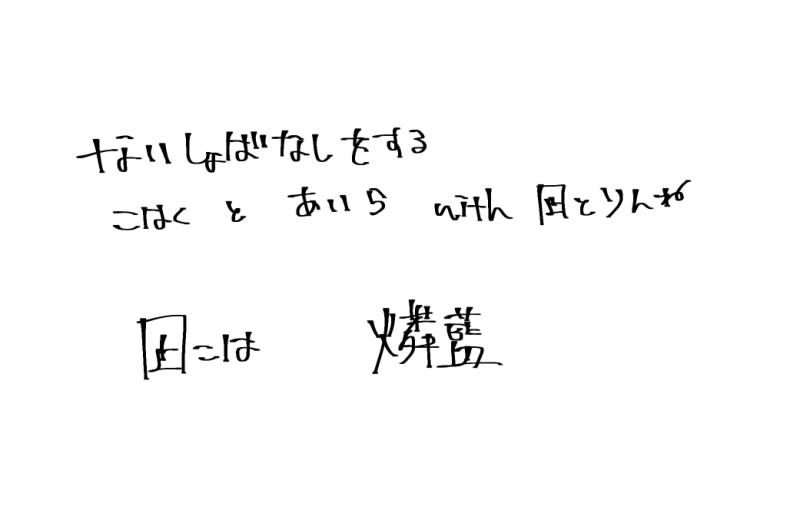 ないしょばなしをする
こはく と あいら with とりんね
こは 燐藍